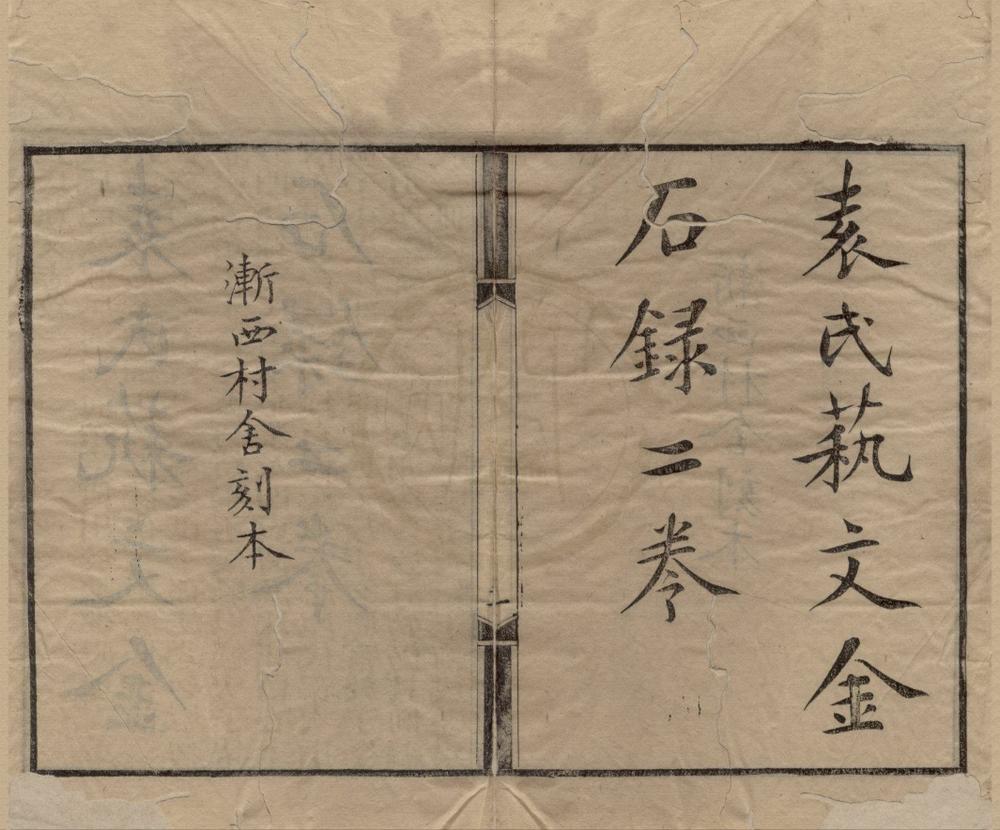 袁氏蓺文金
石録二卷
一
漸西村舍刻本